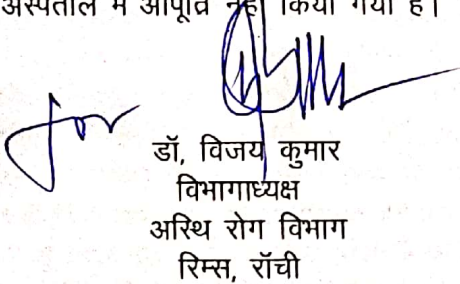 अस्पताल में आपूर्ति नहीं किया गया है।
for
डॉ, विजय कुमार
विभागाध्यक्ष
अस्थि रोग विभाग
रिम्स, राँची